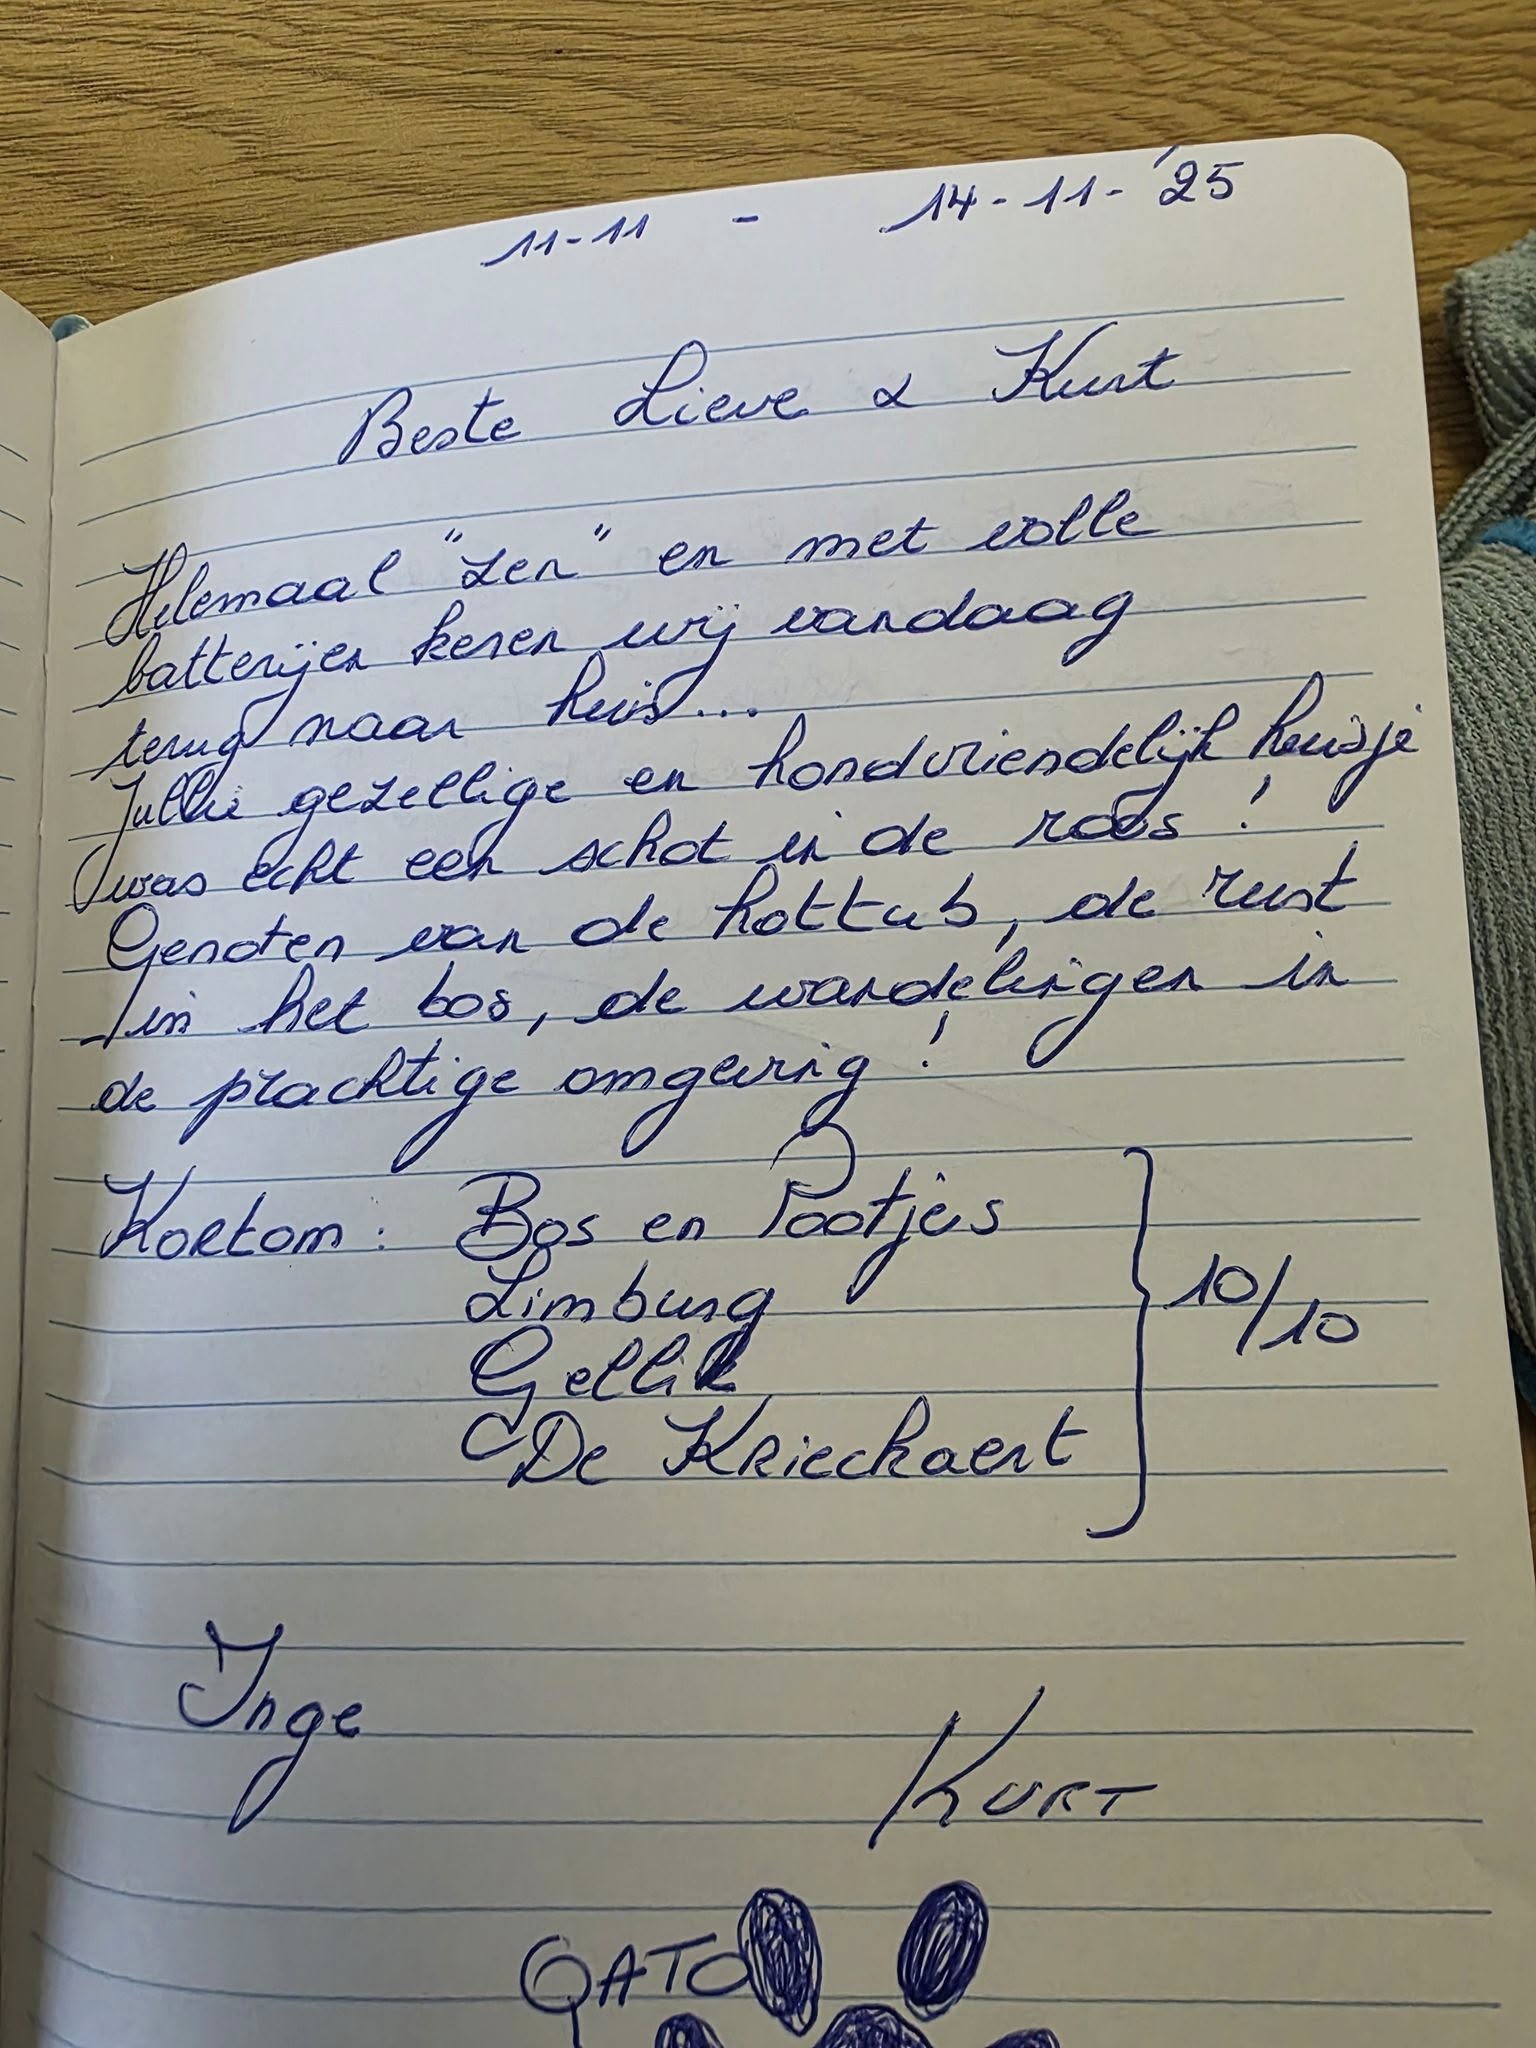 11-11 - 14-11-'25
Beste Lieve & Kurt
Helemaal "zen" en met volle
batterijen keren wij vandaag
terug naar huis...
Jullie gezellige en hondvriendelijk huisje
was echt een schot in de roos!
Genoten van de hottub, de rust
in het bos, de wandelingen in
de prachtige omgeving!
Kortom: Bos en Pootjes
Limburg
Gellik
De Krieckaert
10/10
Inge
KURT
QATO